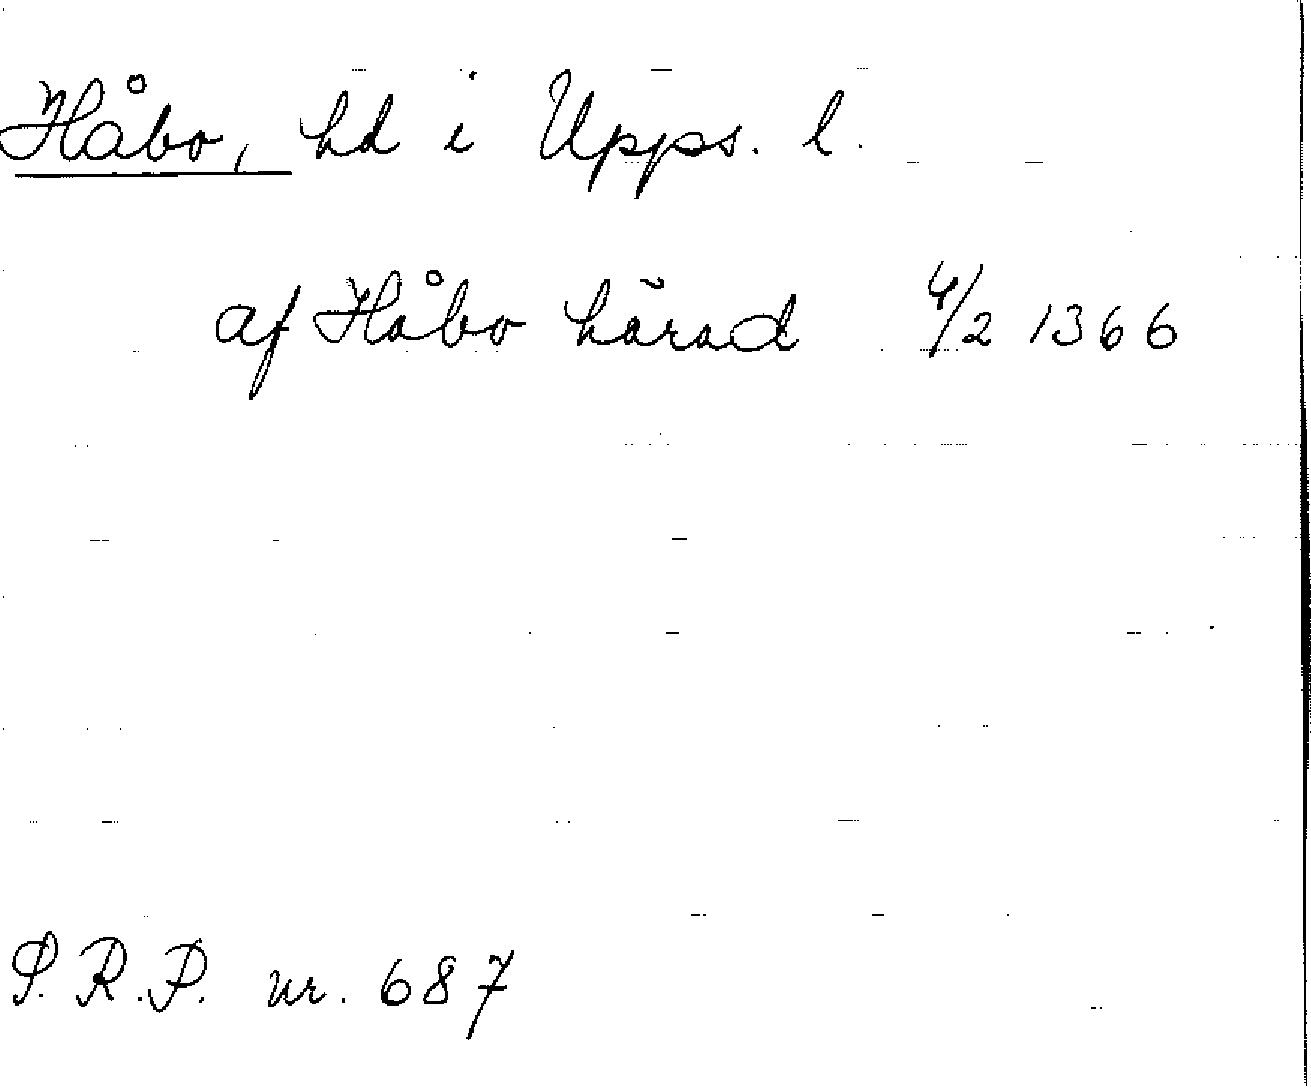 Håbo, hd i Upps. l.
af Håbo härad 4/2 1366
S.R.P. nr. 687